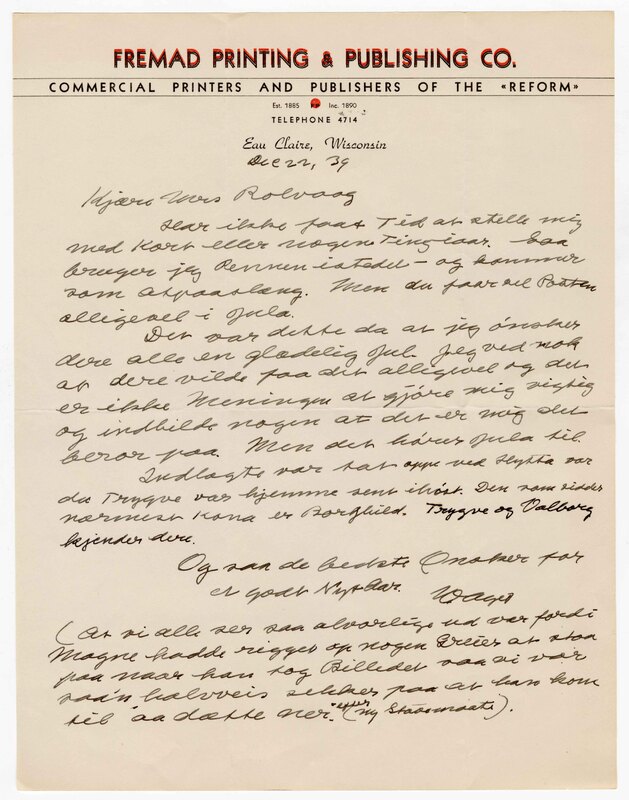 FREMAD PRINTING & PUBLISHING CO.
COMMERCIAL PRINTERS AND PUBLISHERS OF THE «REFORM»
Est. 1885 Inc. 1890
TELEPHONE 4714
Eau Claire, Wisconsin
Dec 22, 39
Kjære Mrs Rolvaag
Har ikke faat Tid at stelle mig
med Kort eller nogen Ting iaar. Saa
bruger jeg Pennen istedet - og kommer
som atpaaslæng. Men du faar vel Posten
alligevel i Jula.
Det var dette da at jeg ønsker
dere alle en glædelig Jul. Jeg ved nok
at dere vilde faa det alligevel og det
er ikke Meningen at gjøre mig vigtig
og indbilde nogen at det er mig det
beror paa. Men det hører Jula til.
Indlagte var tat oppe ved Hytta vor
da Trygve var hjemme sent ihøst. Den som sidder
nærmest Kona er Borghild. Trygve og Valborg
kjender dere.
Og saa de bedste Ønsker for
et godt Nyt Aar. W Ager
(At vi alle ser saa alvorlige ud var fordi
Magne hadde rigget op nogen Greier at staa
paa naar han tog Billedet saa vi var
saa'n halvveis sikker paa at han kom
til "aa dætte ner." (efter ny Staasmaate).